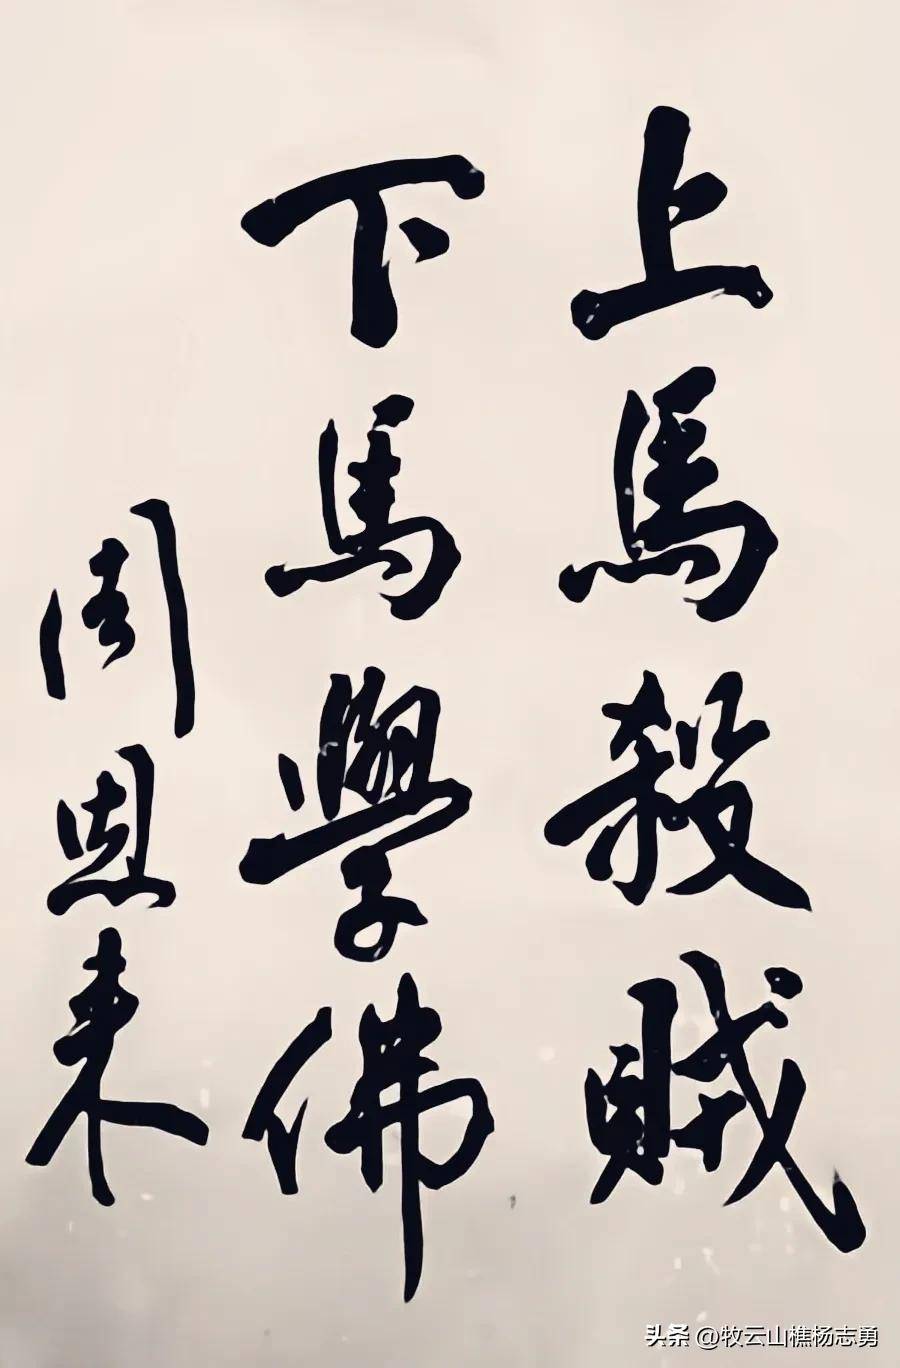 上馬殺賊
下馬學佛
周恩来
头条 @牧云山樵杨志勇